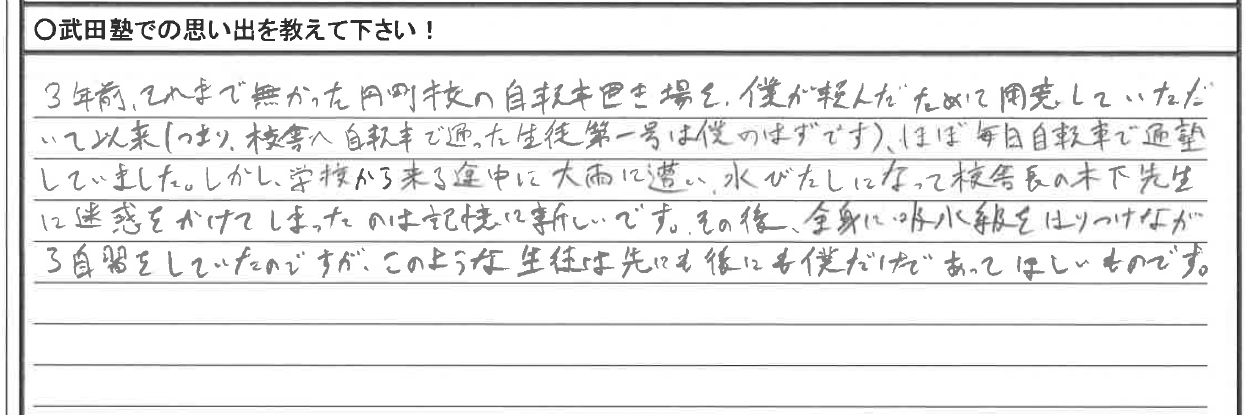 〇武田塾での思い出を教えて下さい！
3年前、それまで無かった円町校の自転車置き場を、僕が頼んだために用意していただ
いて以来(つまり、校舎へ自転車で通った生徒第一号は僕のはずです)、ほぼ毎日自転車で通塾
していました。しかし、学校から来る途中に大雨に遭い、水びたしになって校舎長の木下先生
に迷惑をかけてしまったのは記憶に新しいです。その後、全身に吸水紙をはりつけなが
ら自習をしていたのですが、このような生徒は先にも後にも僕だけであってほしいものです。